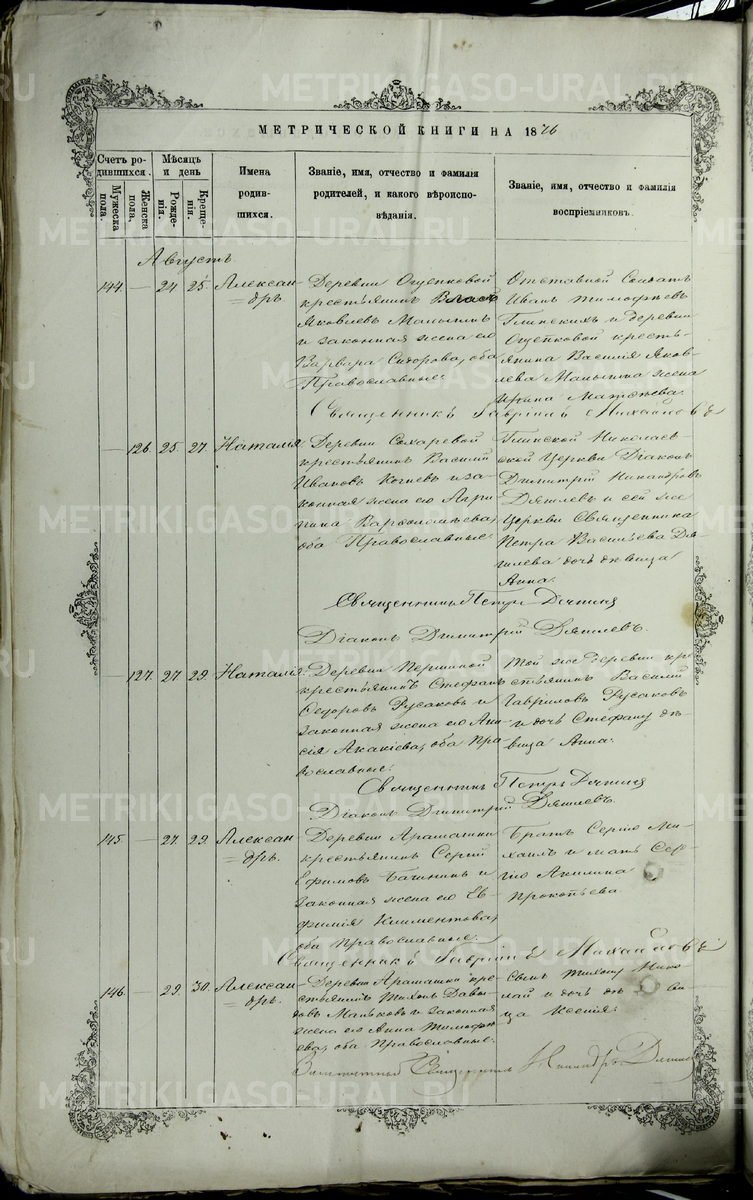 METRIKI.GASO-URAL.RU
МЕТРИЧЕСКОЙ КНИГИ НА 1876
Счетъ родившихся.
Мужеска пола.
Женска пола.
Мѣсяцъ и день
Рожденія.
Крещенія.
Имена родившихся.
Званіе, имя, отчество и фамилія родителей, и какого вѣроисповѣданія.
Званіе, имя, отчество и фамилія воспріемниковъ.
Августъ
144. — 24. 25. Александръ
Деревни Ощепковой
крестьянинъ Власъ
Яковлевъ Маньшинъ
и законная жена его
Варвара Сидорова, оба
Православные.
Отставной Солдатъ
Иванъ Тимофѣевъ
Глинскихъ и деревни
Ощепковой кресть-
янина Василія Яков-
лева Маньшина жена
Ирина Матѳѣева.
Священникъ Гавріилъ Михайловъ
— 126. 25. 27. Наталія
Деревни Сохаревой
крестьянинъ Василій
Ивановъ и за-
конная жена его Агри-
пина Варѳоломѣева,
оба Православные.
Глинской Николаев-
ской Церкви Діаконъ
Димитрій Никандровъ
Дягилевъ и сей же
Церкви Священника
Петра Васильева Дя-
гилева дочь дѣвица
Анна.
Священникъ Петръ Дягилевъ
Діаконъ Димитрій Дягилевъ.
— 127. 27. 29. Наталія
Деревни Першиной
крестьянинъ Стефанъ
Ѳедоровъ Русаковъ и
законная жена его Ани-
сія Акакіева, оба Пра-
вославные.
Той же деревни кре-
стьянинъ Василій
Гавриловъ Русаковъ
и дочь Стефану дѣ-
вица Анна.
Священникъ Петръ Дягилевъ
Діаконъ Димитрій Дягилевъ
145. — 27. 29. Александръ.
Деревни Арамашки
крестьянинъ Сергій
Ефимовъ и
законная жена его Ев-
фимія Климентова,
оба Православные.
Братъ Сергію Ми-
хаилъ и мать Сер-
гію Акилина
Прокопьева.
Священникъ Гавріилъ Михайловъ
146. — 29. 30. Александръ.
Деревни Арамашки кре-
стьянинъ Тихонъ Давы-
довъ Маньковъ и законная
жена его Анна Тимофѣ-
ева, оба Православные.
Сынъ Тихону Нико-
лай и дочь дѣви-
ца Ксенія.
Священникъ Никандръ Дягилевъ